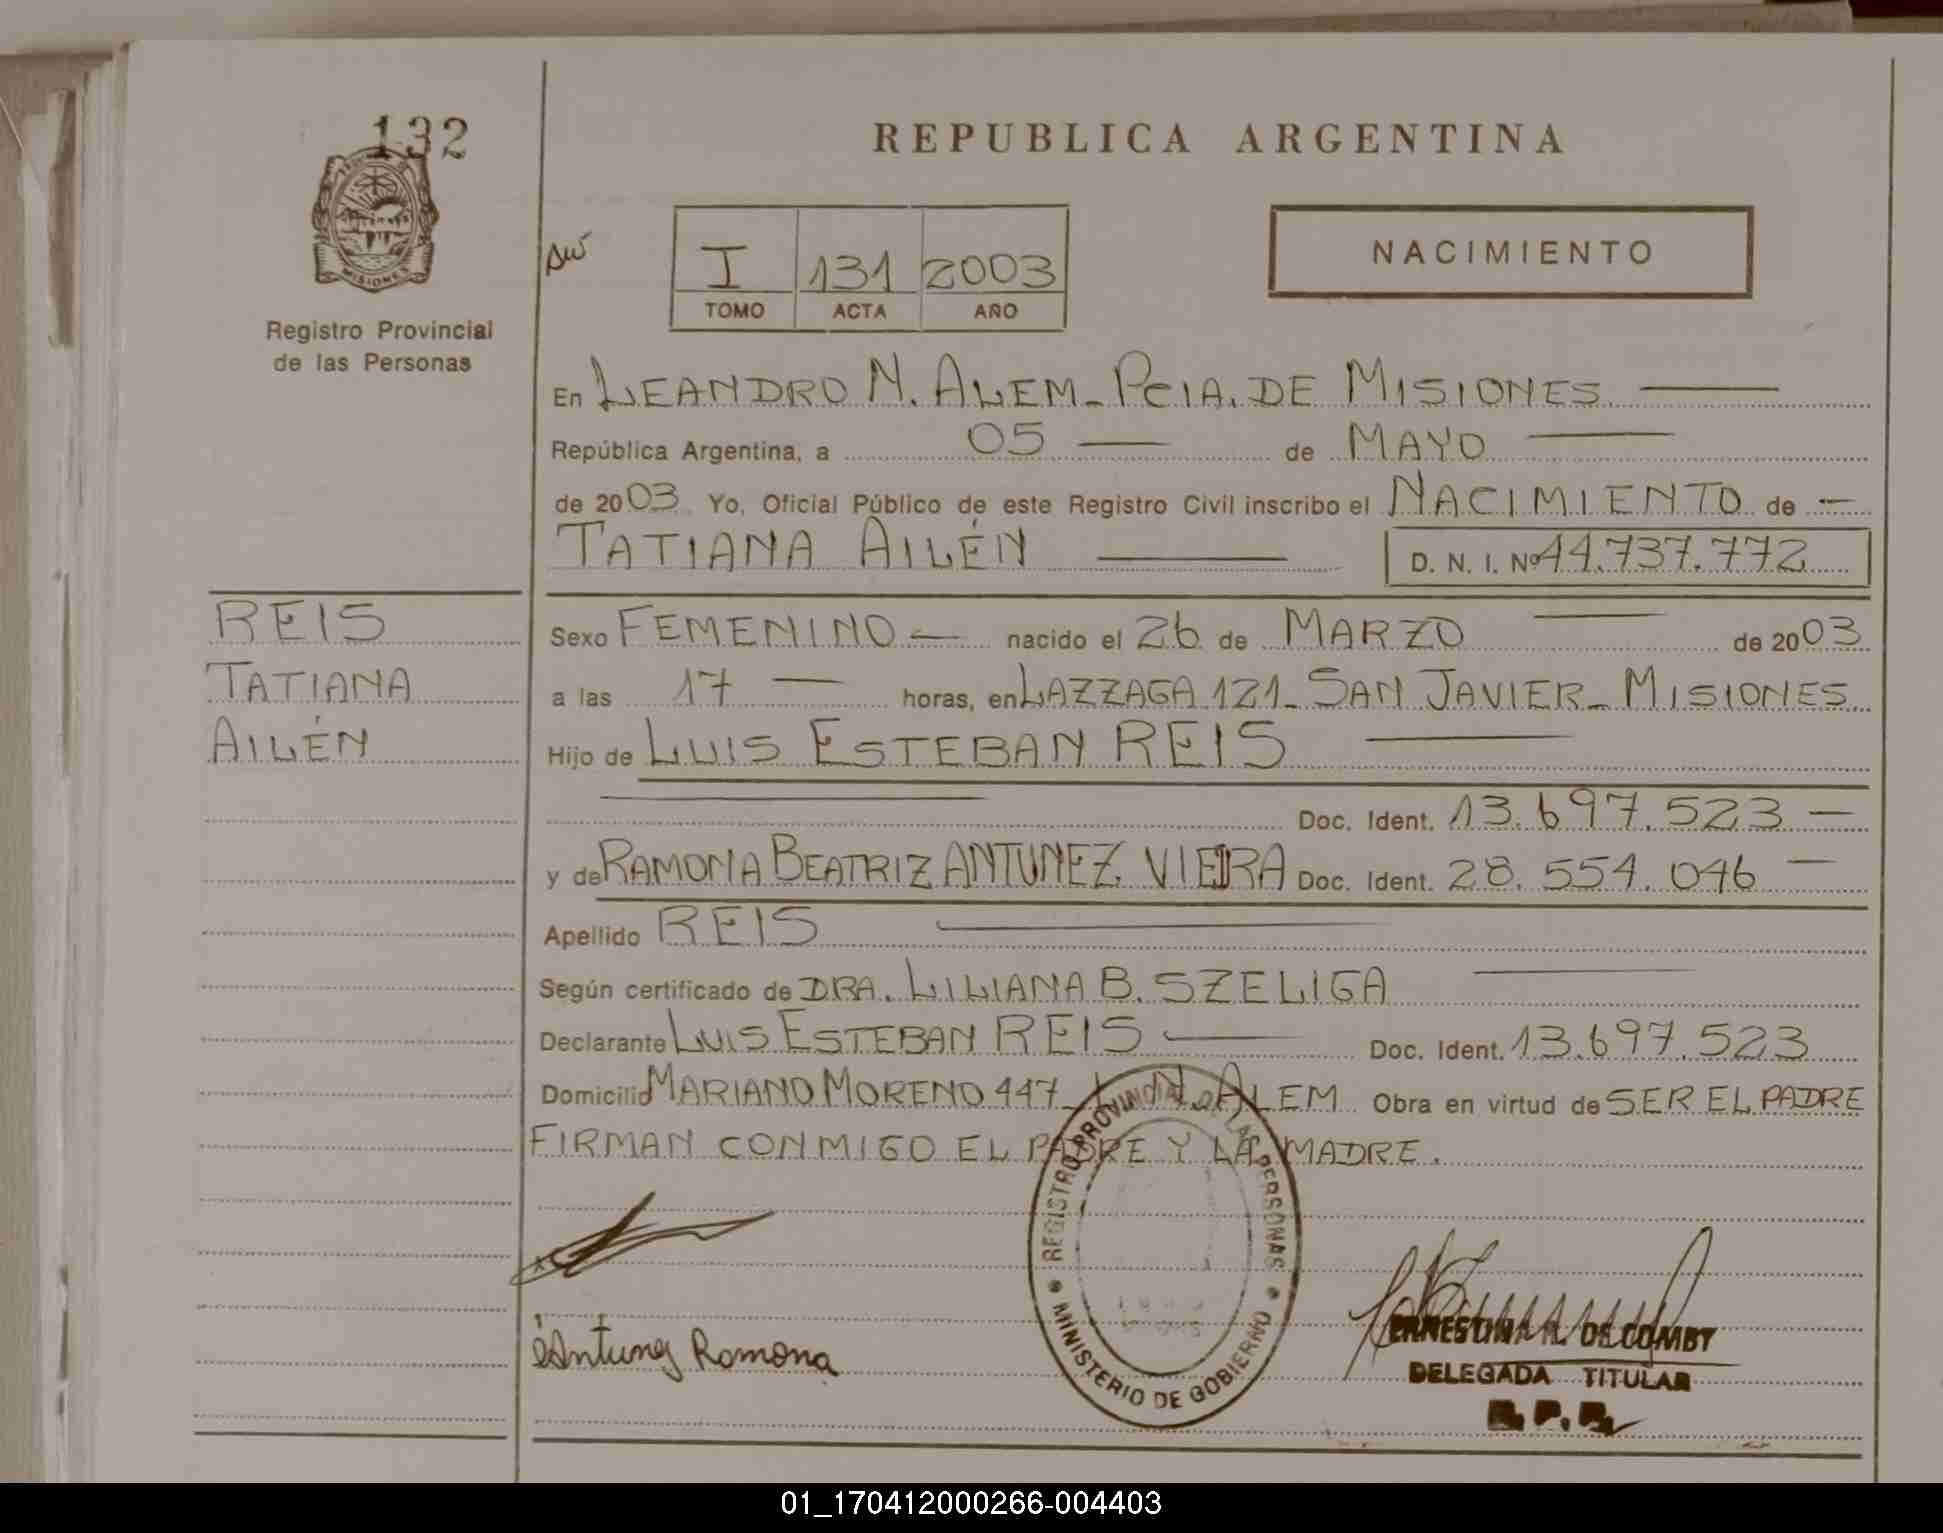 132
MISIONES
Registro Provincial
de las Personas
REPUBLICA ARGENTINA
I 131 2003
TOMO ACTA AÑO
NACIMIENTO
En LEANDRO N. ALEM - PCIA. DE MISIONES
República Argentina, a 05 de MAYO
de 2003 Yo, Oficial Público de este Registro Civil inscribo el NACIMIENTO de
TATIANA AILÉN D. N. I. Nº 44.737.772
REIS
TATIANA
AILÉN
Sexo FEMENINO nacido el 26 de MARZO de 2003
a las 17 horas, en LAZZAGA 121 - SAN JAVIER - MISIONES
Hijo de LUIS ESTEBAN REIS
Doc. Ident. 13.697.523
y de RAMONA BEATRIZ ANTUNEZ VIEIRA Doc. Ident. 28.554.046
Apellido REIS
Según certificado de DRA. LILIANA B. SZELIGA
Declarante LUIS ESTEBAN REIS Doc. Ident. 13.697.523
Domicilio MARIANO MORENO 447 - L. N. ALEM Obra en virtud de SER EL PADRE
FIRMAN CONMIGO EL PADRE Y LA MADRE.
REGISTRO PROVINCIAL DE LAS PERSONAS
MINISTERIO DE GOBIERNO
Antunez Ramona
ERNESTINA R. DE COMBY
DELEGADA TITULAR
R. P. P.
01_170412000266-004403